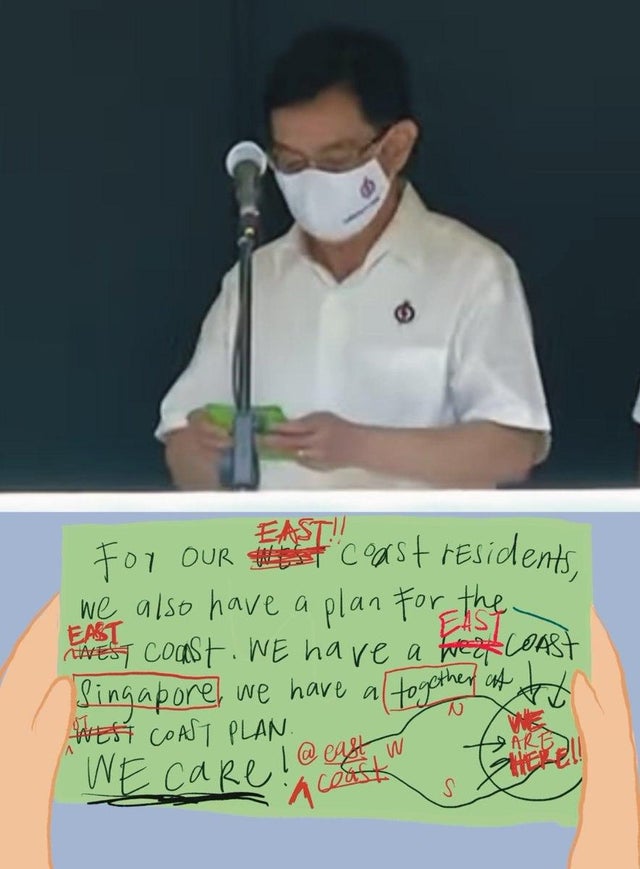 EAST!!
FOR OUR WEST Coast residents,
we also have a plan For the
EAST EAST
WEST COAST. WE have a West COAST
Singapore, we have a together at
WEST COAST PLAN.
WE CaRe! @ east coast
N
W
S
WE ARE HERE!!